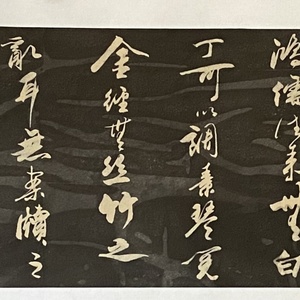 鴻儒往来無白
丁可以調素琴閱
金經無絲竹之
亂耳無案牘之